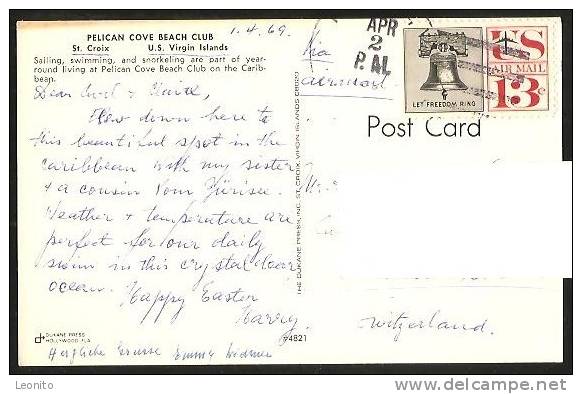 PELICAN COVE BEACH CLUB
St. Croix U.S. Virgin Islands
Sailing, swimming, and snorkeling are part of year-
round living at Pelican Cove Beach Club on the Carib-
bean.
1.4.69.
Via
airmail
APR
2
P.M.
LET FREEDOM RING
US
AIR MAIL
13c
Post Card
Dear &
Flew down here to
this beautiful spot in the
caribbean with my sister
+ a cousin vom Zürisee.
Weather + temperature are
perfect for our daily
swim in this crystal clear
ocean. Happy Easter
Harry
Herzliche Grüsse Emmy
THE DUKANE PRESS, INC. ST. CROIX, VIRGIN ISLANDS 00820
DUKANE PRESS
HOLLYWOOD, FLA.
94821
Switzerland.
Leonito
delcampe.net